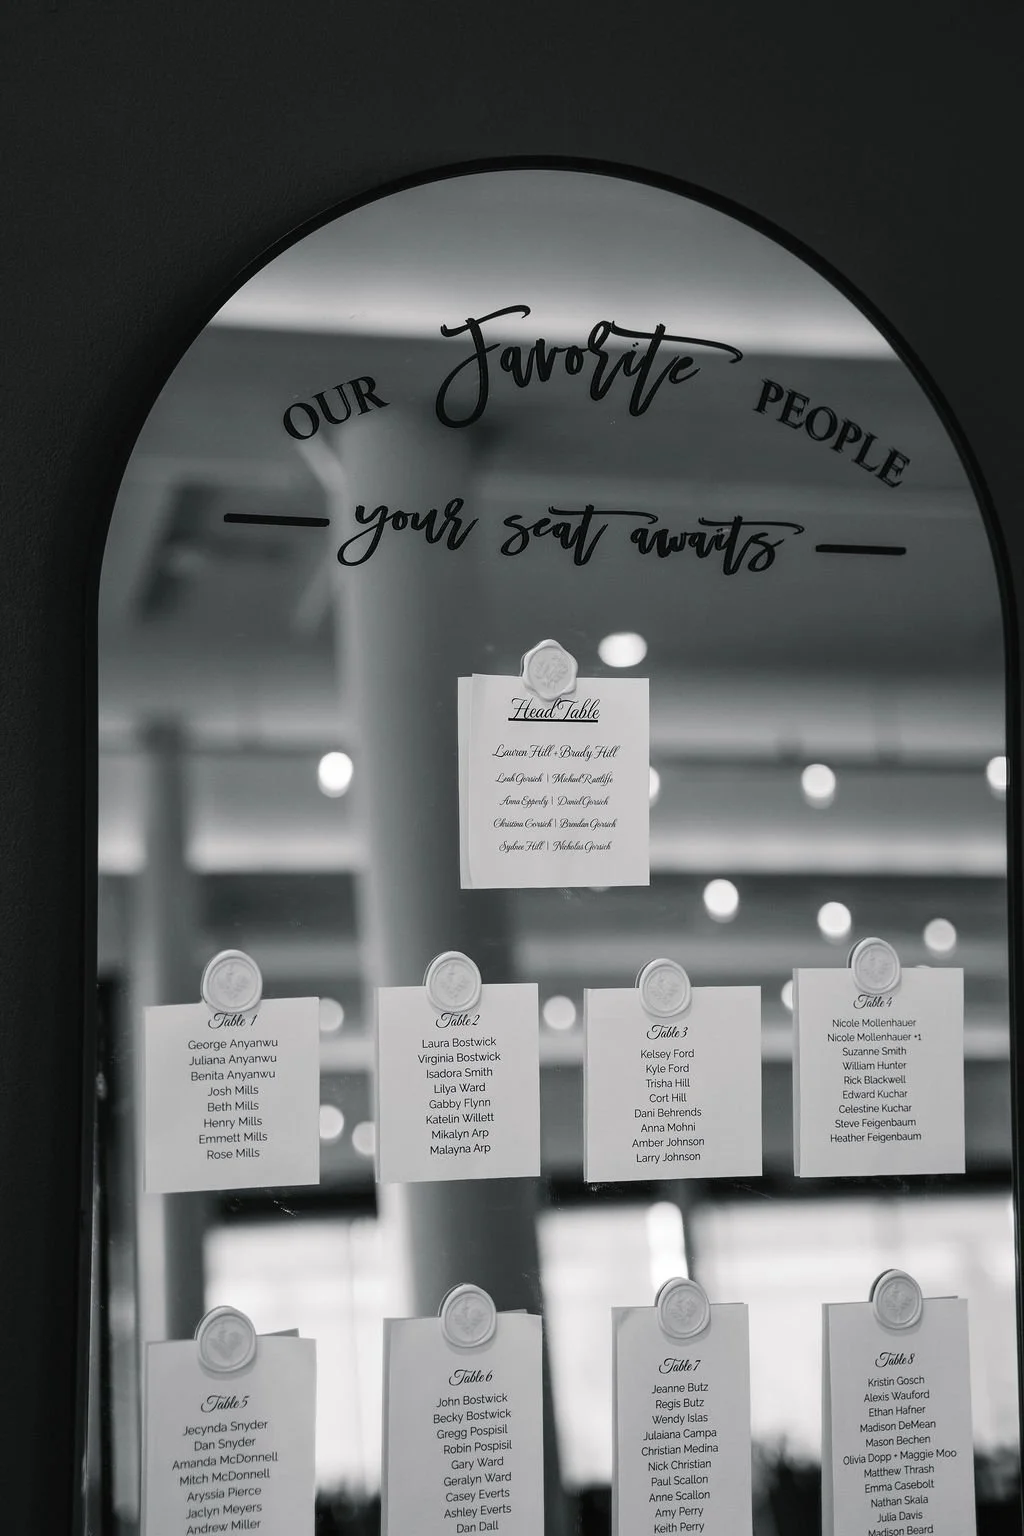 OUR Favorite PEOPLE
your seat awaits
Head Table
Lauren Hill + Brady Hill
Leah Gorsich | Michael Rattliffe
Anna Epperly | Daniel Gorsich
Christina Gorsich | Brendan Gorsich
Sydnee Hill | Nicholas Gorsich
Table 1
George Anyanwu
Juliana Anyanwu
Benita Anyanwu
Josh Mills
Beth Mills
Henry Mills
Emmett Mills
Rose Mills
Table 2
Laura Bostwick
Virginia Bostwick
Isadora Smith
Lilya Ward
Gabby Flynn
Katelin Willett
Mikalyn Arp
Malayna Arp
Table 3
Kelsey Ford
Kyle Ford
Trisha Hill
Cort Hill
Dani Behrends
Anna Mohni
Amber Johnson
Larry Johnson
Table 4
Nicole Mollenhauer
Nicole Mollenhauer +1
Suzanne Smith
William Hunter
Rick Blackwell
Edward Kuchar
Celestine Kuchar
Steve Feigenbaum
Heather Feigenbaum
Table 5
Jecynda Snyder
Dan Snyder
Amanda McDonnell
Mitch McDonnell
Aryssia Pierce
Jaclyn Meyers
Andrew Miller
Table 6
John Bostwick
Becky Bostwick
Gregg Pospisil
Robin Pospisil
Gary Ward
Geralyn Ward
Casey Everts
Ashley Everts
Dan Dall
Table 7
Jeanne Butz
Regis Butz
Wendy Islas
Julaiana Campa
Christian Medina
Nick Christian
Paul Scallon
Anne Scallon
Amy Perry
Keith Perry
Table 8
Kristin Gosch
Alexis Wauford
Ethan Hafner
Madison DeMean
Mason Bechen
Olivia Dopp + Maggie Moo
Matthew Thrash
Emma Casebolt
Nathan Skala
Julia Davis
Madison Beard